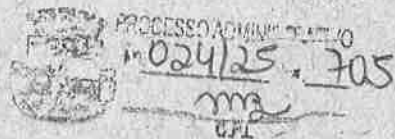 PROCESSO ADMINISTRATIVO
nº 024/25 . 705
CPL